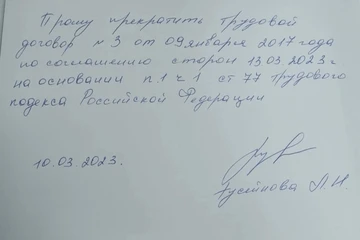 Прошу прекратить трудовой
договор № 3 от 09 января 2017 года
по соглашению сторон 13.03.2023 г
на основании п.1 ч 1 ст 77 трудового
кодекса Российской Федерации
10.03.2023.
Гусейнова Л.Н.